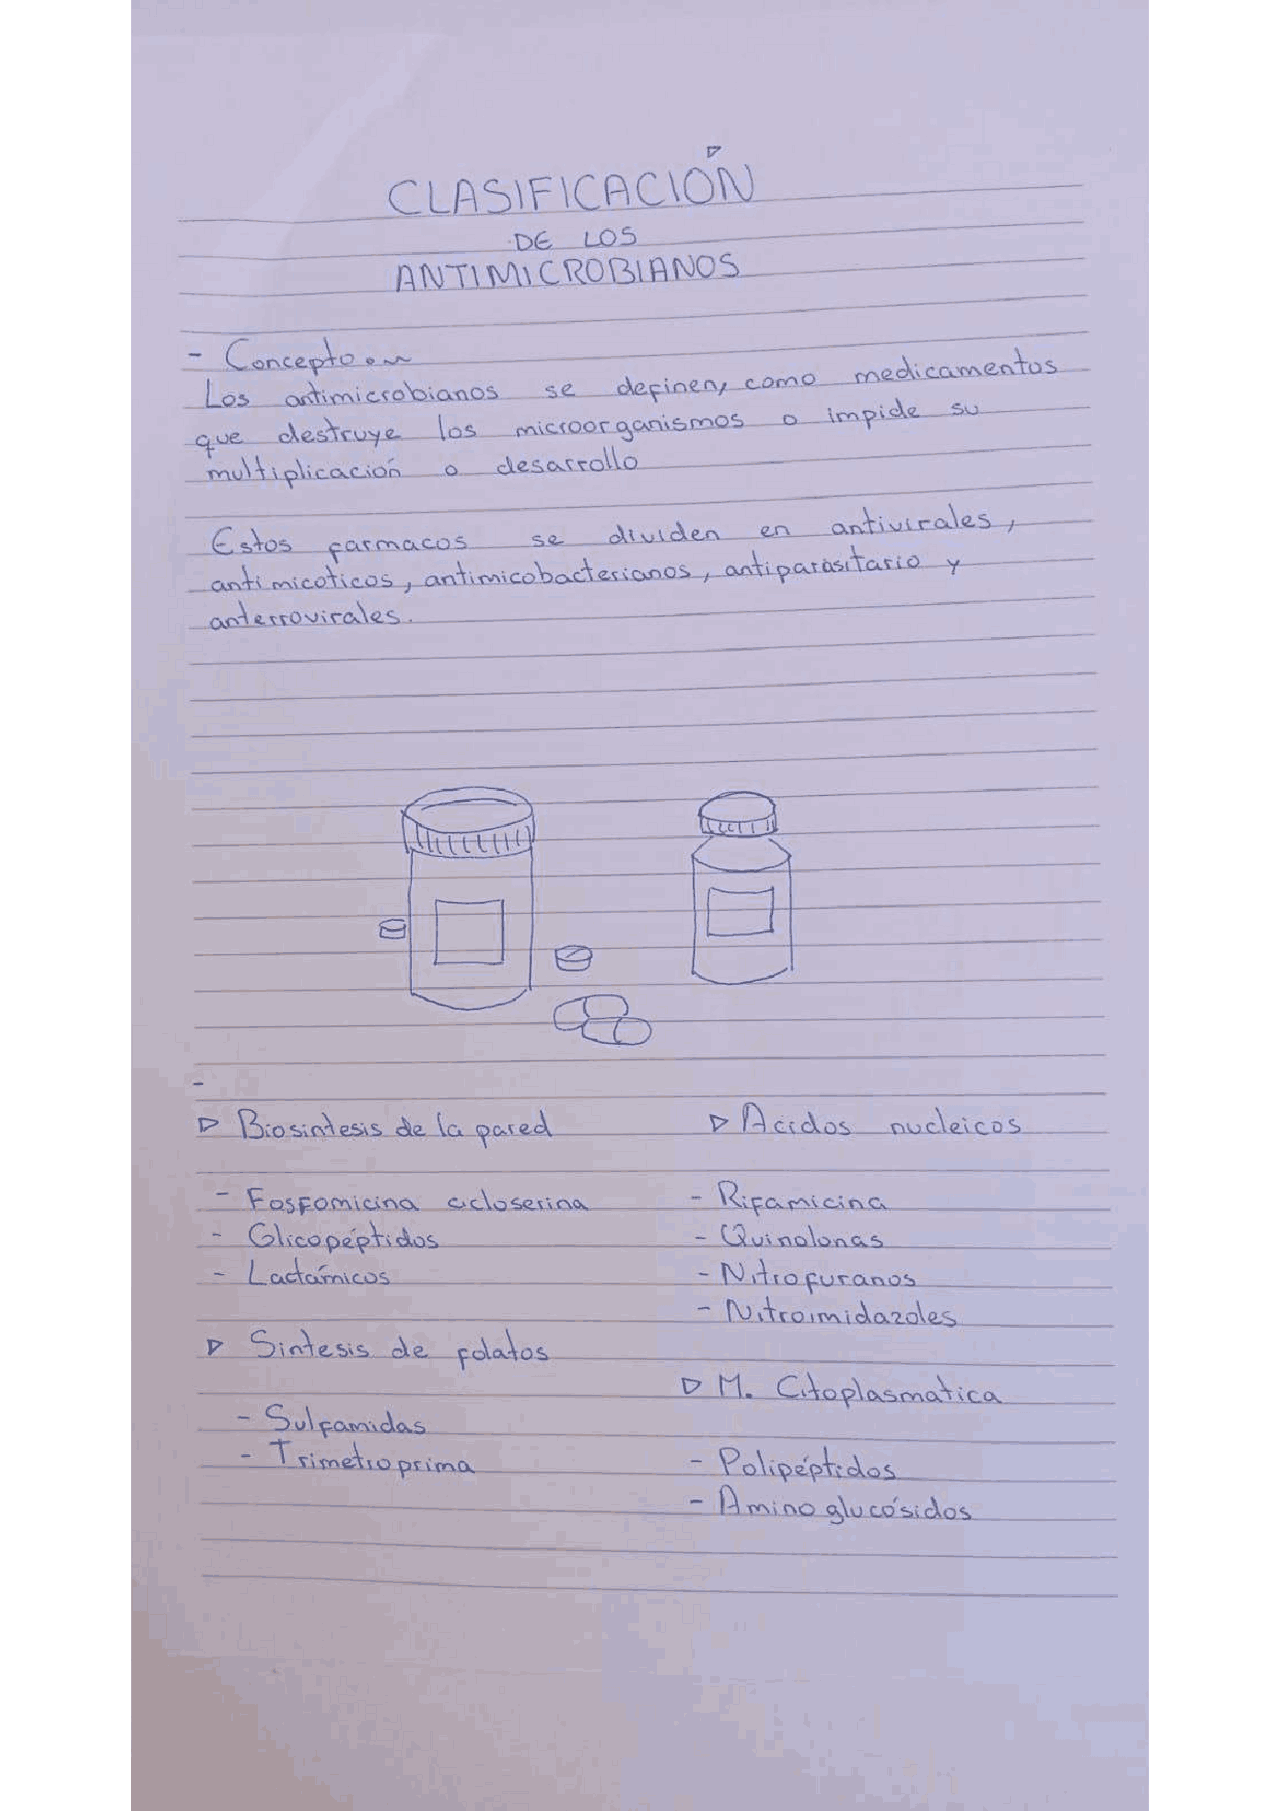 CLASIFICACIÓN
DE LOS
ANTIMICROBIANOS
- Concepto
Los antimicrobianos se definen, como medicamentos
que destruye los microorganismos o impide su
multiplicación o desarrollo
Estos farmacos se dividen en antivirales,
antimicoticos, antimicobacterianos, antiparasitario y
anterrovirales.
-
▷ Biosintesis de la pared
- Fosfomicina cicloserina
- Glicopéptidos
- Lactámicos
▷ Sintesis de folatos
- Sulfamidas
- Trimetroprima
▷ Acidos nucleicos
- Rifamicina
- Quinolonas
- Nitrofuranos
- Nitroimidazoles
▷ M. Citoplasmatica
- Polipéptidos
- Amino glucósidos